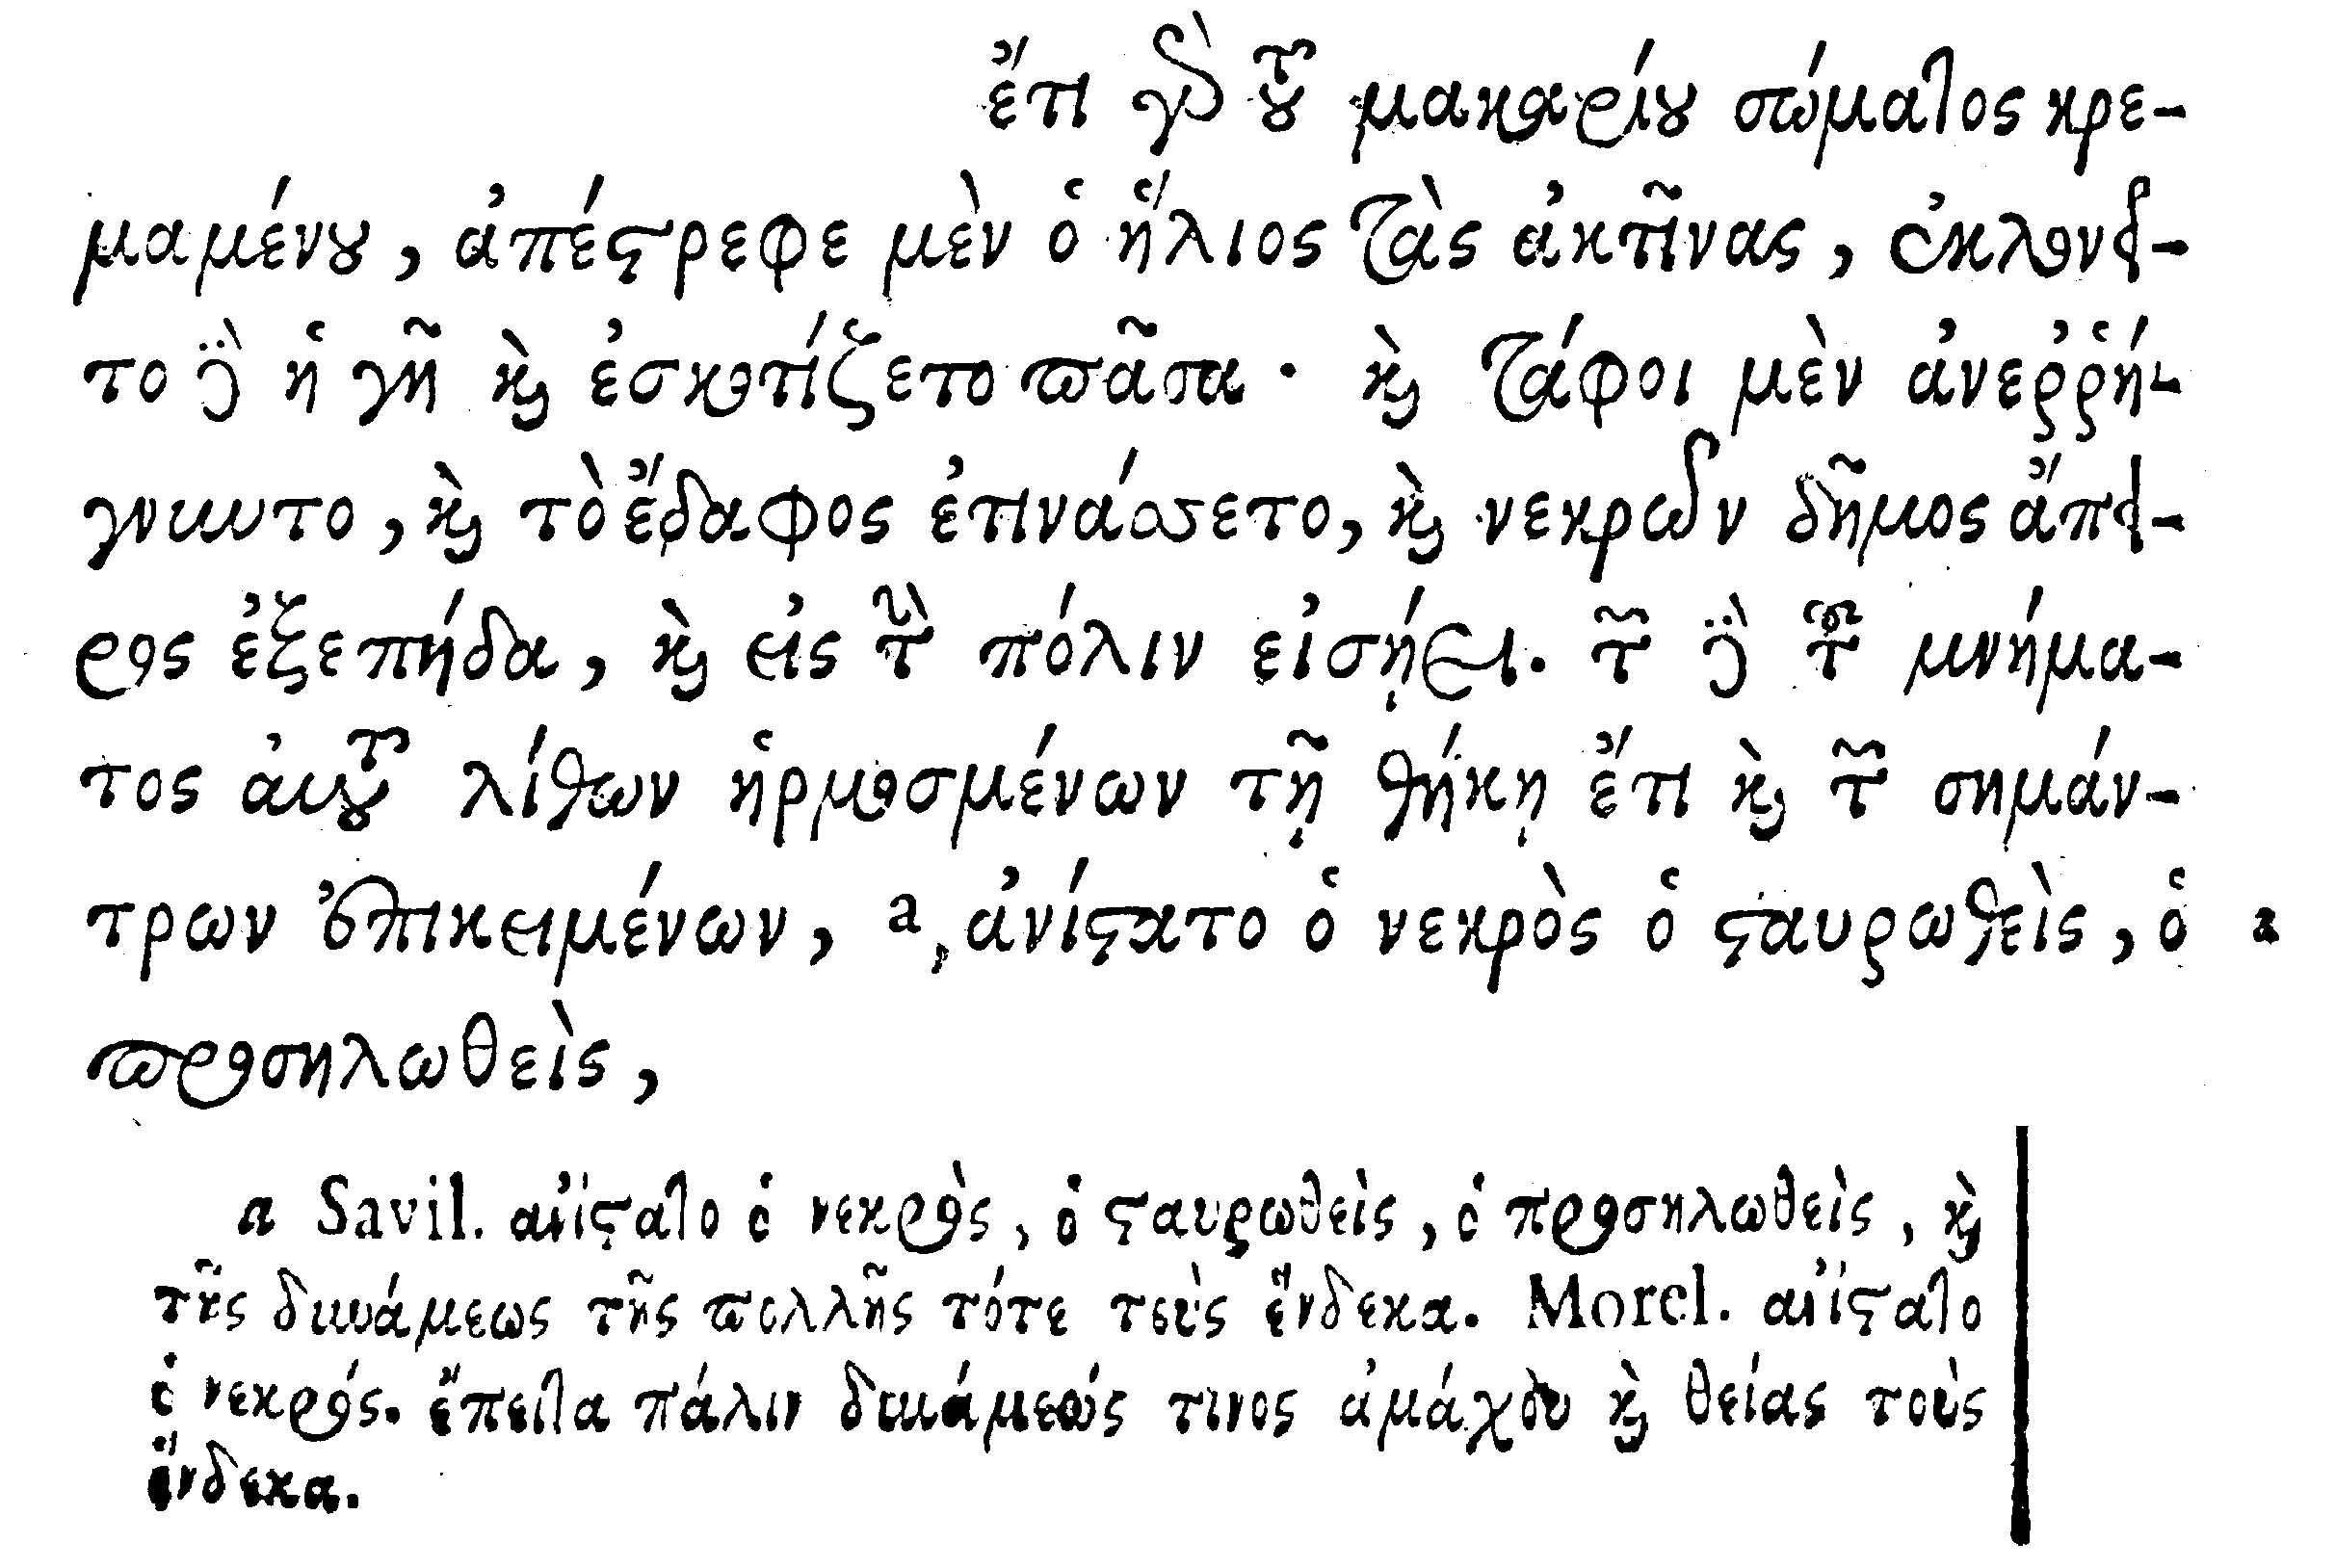 ἔτι γὰρ τοῦ μακαρίου σώματος κρε-
μαμένου, ἀπέστρεφε μὲν ὁ ἥλιος τὰς ἀκτῖνας, ἐκλονεῖ-
το δὲ ἡ γῆ καὶ ἐσκοτίζετο πᾶσα· καὶ τάφοι μὲν ἀνεῤῥή-
γνυντο, καὶ τὸ ἔδαφος ἐτινάσσετο, καὶ νεκρῶν δῆμος ἄπει-
ρος ἐξεπήδα, καὶ εἰς τὴν πόλιν εἰσῄει. τῶν δὲ τοῦ μνήμα-
τος αὐτοῦ λίθων ἡρμοσμένων τῇ θήκῃ ἔτι καὶ τῶν σημάν-
τρων ἐπικειμένων, a, ἀνίστατο ὁ νεκρὸς ὁ σταυρωθεὶς, ὁ a
προσηλωθεὶς,
a Savil. ἀνίστατο ὁ νεκρὸς, ὁ σταυρωθεὶς, ὁ προσηλωθεὶς, καὶ
τῆς δυνάμεως τῆς πολλῆς τότε τοὺς ἕνδεκα. Morel. ἀνίστατο
ὁ νεκρός. ἔπειτα πάλιν δυνάμεώς τινος ἀμάχου καὶ θείας τοὺς
ἕνδεκα.